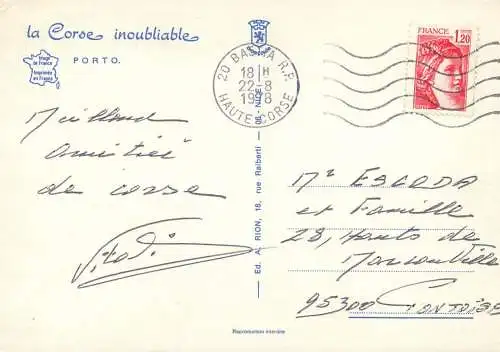 la Corse inoubliable
PORTO.
Image de France
Imprimée en France
20 BASTIA R.P.
18 H
22-8
1978
HAUTE CORSE
FRANCE
1,20
Meilleures
amitiés
de corse
Mr ESCODA
et Famille
28, Hauts de
Marcouville
95300 Pontoise
Ed. A. RION, 18, rue Raiberti — 06 NICE
Reproduction interdite